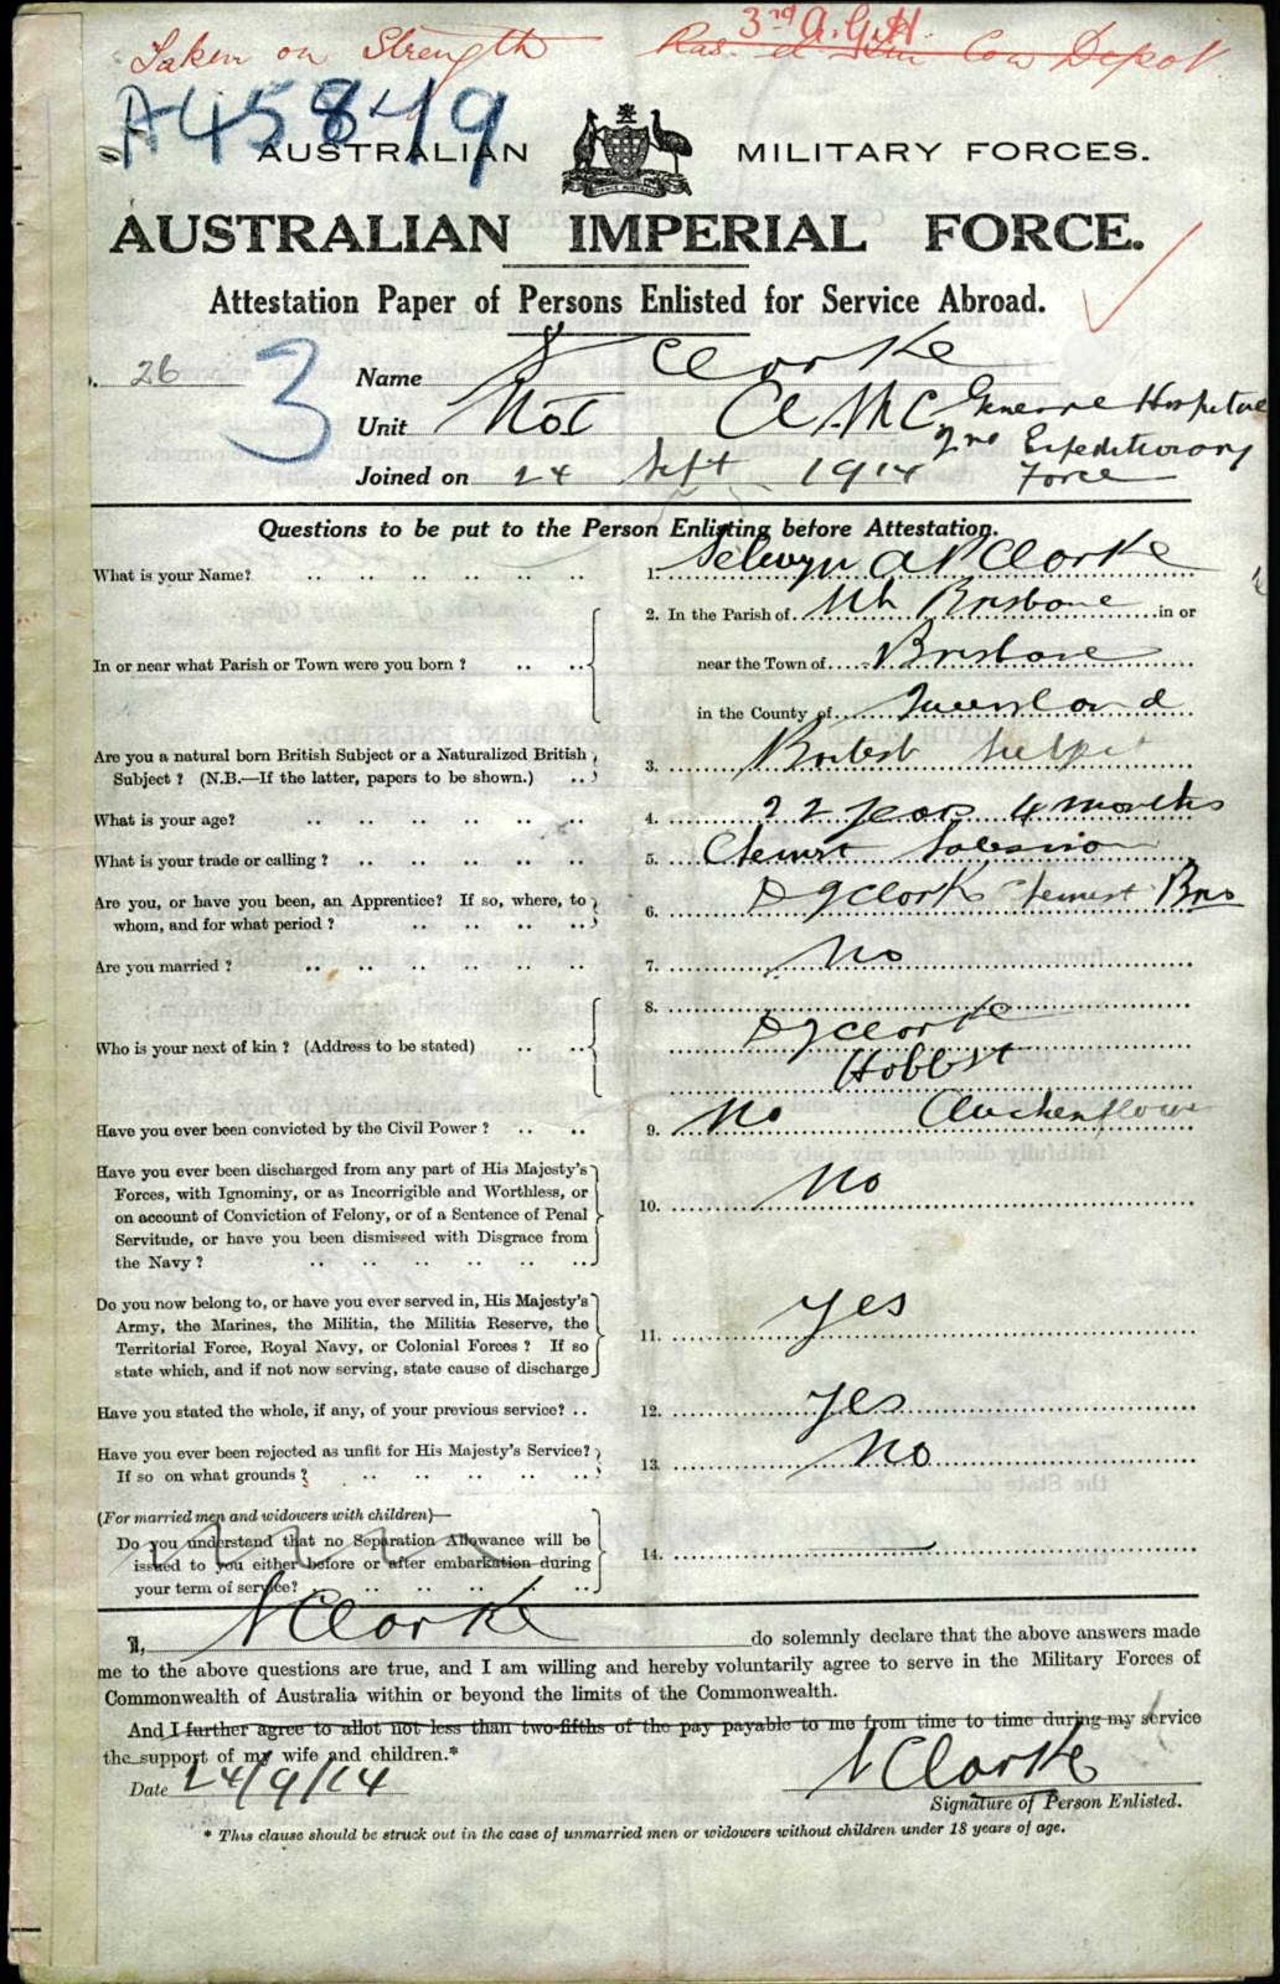 Taken on Strength 3rd A.G.H.
Depot
A45849
AUSTRALIAN MILITARY FORCES.
AUSTRALIAN IMPERIAL FORCE.
Attestation Paper of Persons Enlisted for Service Abroad.
26 3 Name S Clarke
Unit No 1 A.M.C. General Hospital
2nd Expeditionary
Joined on 24 Sept 1914 Force
Questions to be put to the Person Enlisting before Attestation.
What is your Name? 1. Selwyn A P Clarke
In or near what Parish or Town were you born? 2. In the Parish of Nth Brisbane in or
near the Town of Brisbane
in the County of Queensland
Are you a natural born British Subject or a Naturalized British
Subject? (N.B.—If the latter, papers to be shown.) 3. British Subject
What is your age? 4. 22 years 4 months
What is your trade or calling? 5. Chemist
Are you, or have you been, an Apprentice? If so, where, to
whom, and for what period? 6. D G Clark Chemist Bris
Are you married? 7. No
8.
Who is your next of kin? (Address to be stated) D G Clarke
Hobbs St
Auchenflower
Have you ever been convicted by the Civil Power? 9. No
Have you ever been discharged from any part of His Majesty's
Forces, with Ignominy, or as Incorrigible and Worthless, or
on account of Conviction of Felony, or of a Sentence of Penal
Servitude, or have you been dismissed with Disgrace from
the Navy? 10. No
Do you now belong to, or have you ever served in, His Majesty's
Army, the Marines, the Militia, the Militia Reserve, the
Territorial Force, Royal Navy, or Colonial Forces? If so
state which, and if not now serving, state cause of discharge 11. yes
Have you stated the whole, if any, of your previous service? 12. yes
Have you ever been rejected as unfit for His Majesty's Service?
If so on what grounds? 13. No
(For married men and widowers with children)—
Do you understand that no Separation Allowance will be
issued to you either before or after embarkation during
your term of service? 14.
I, S Clarke do solemnly declare that the above answers made
me to the above questions are true, and I am willing and hereby voluntarily agree to serve in the Military Forces of
Commonwealth of Australia within or beyond the limits of the Commonwealth.
And I further agree to allot not less than two-fifths of the pay payable to me from time to time during my service
the support of my wife and children.*
Date 24/9/14 S Clarke
Signature of Person Enlisted.
* This clause should be struck out in the case of unmarried men or widowers without children under 18 years of age.